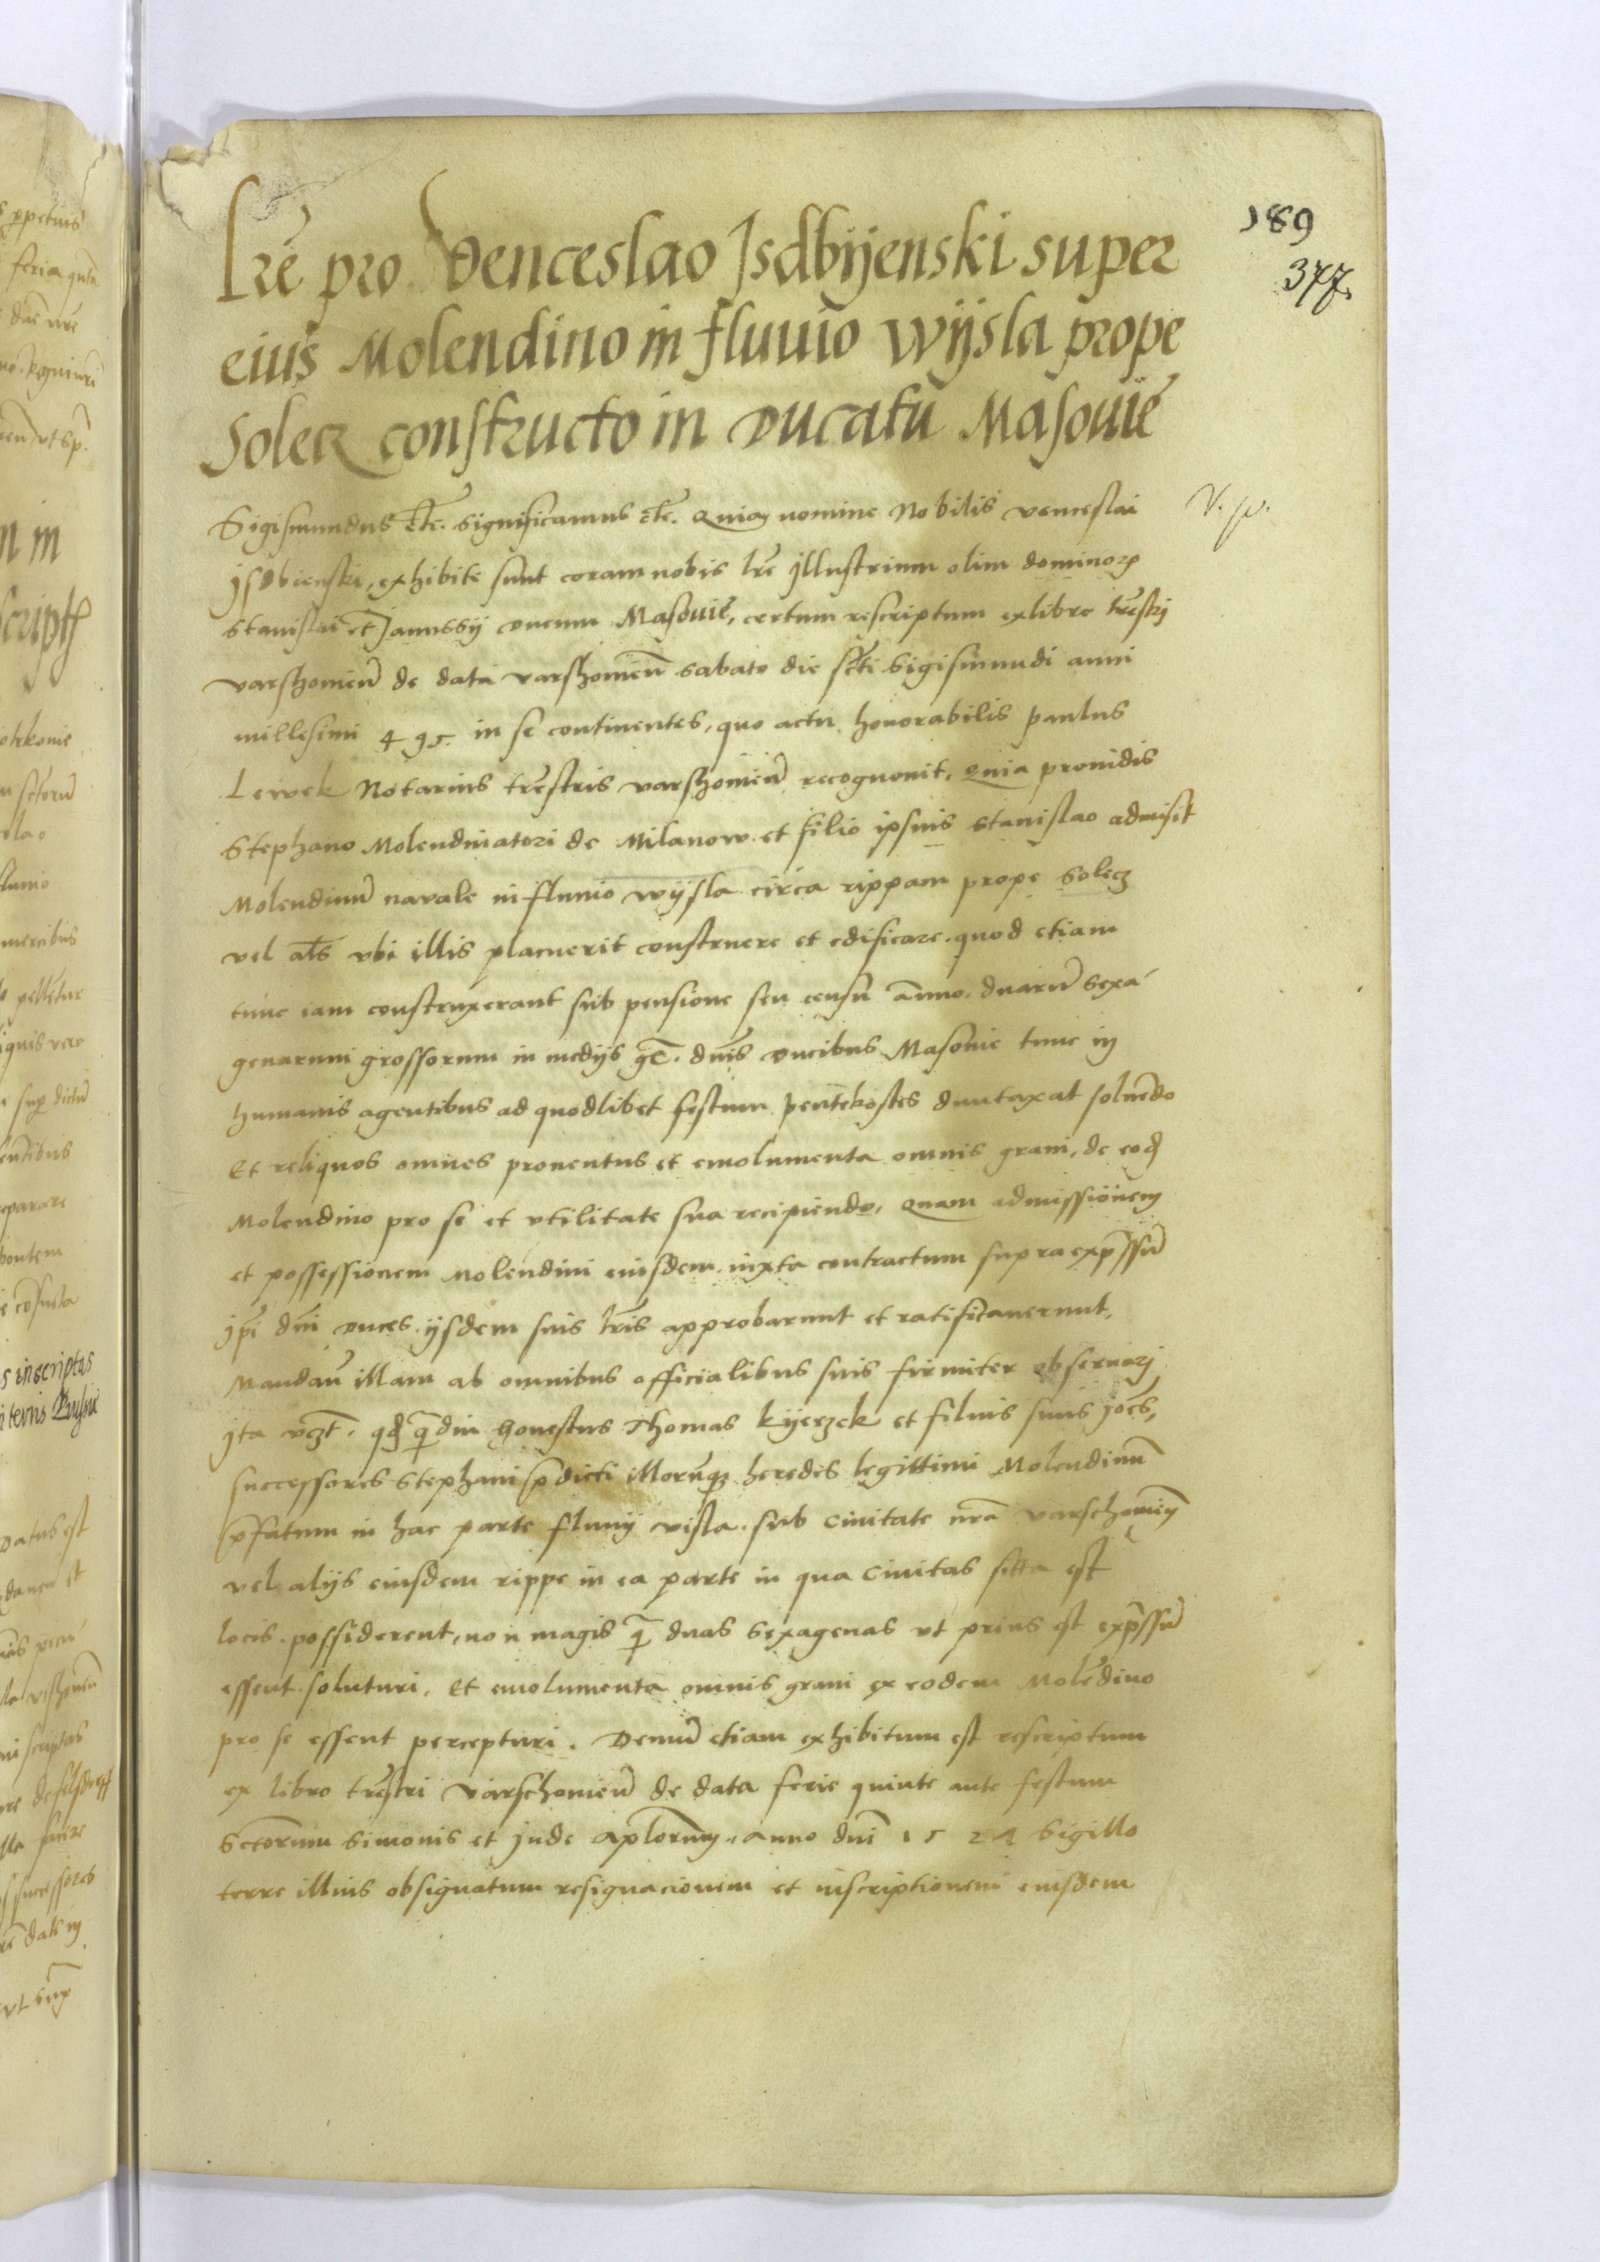 189
377.
Lrẽ pro Venceslao Isdbijenski super
eius Molendino in fluuio Wijsla prope
Solecz constructo in Ducatu Masouiẽ
V. sp.
Sigismundus etc̃. Significamus etc̃. Quia nomine Nobilis venceslai
Isdbienski, exhibite sunt coram nobis lrẽ Illustrium olim dominoꝝ
Stanislai et Janussij ducum Masouiẽ, certum rescriptum ex libro trẽstri
varshouieñ de data varshouieñ sabato die scti Sigismundi anni
millesimi 495. in se continentes, quo actu honorabilis paulus
Lewek Notarius trẽstris varshouieñ recognouit, Quia prouidis
Stephano Molendinatori de Milanow et filio ipsius Stanislao admisit
Molendinũ navale in fluuio wijsla circa rippam prope Solecz
vel als̃ vbi illis placuerit construere et edificare. quod etiam
tunc iam construxerant sub pensione seu censu anno. duarũ sexa
genarum grossorum in medijs gc̃. dnĩs ducibus Masouie tunc in
humanis agentibus ad quodlibet festum pentekostes duntaxat soluẽdo
Et reliquos omnes prouentus et emolumenta omnis grani, de eod̃
Molendino pro se et vtilitate sua recipiendo, Quam admissionem
et possessionem Molendini eiusdem iuxta contractum supra exp̃ssũ
ipĩ dnĩ duces. ijsdem suis lrĩs approbarunt et ratificauerunt,
Mandañ illam ab omnibus officialibus suis firmiter obseruari
Ita vczt̃. qđ q̃diu honestus Thomas kijerzek et filius suus joẽs,
successores Stephani p̃dicti illorũqꝫ heredes legittimi Molendinũ
p̃fatum in hac parte fluuij visla. sub Ciuitate nrã varschouieñ
vel alijs eiusdem rippe in ea parte in qua Ciuitas sitta est
locis. possiderent, non magis q̃ duas sexagenas vt prius est exp̃ssũ
essent soluturi, Et emolumenta omnis grani ex eodem Molẽdino
pro se essent percepturi. Demũ etiam exhibitum est rescriptum
ex libro trẽstri varschouieñ de data ferie quinte ante festum
Sctorum Simonis et Jude aplorum, anno dnĩ 1524 Sigillo
terre illius obsignatum resignacionem et inscriptionem eiusdem